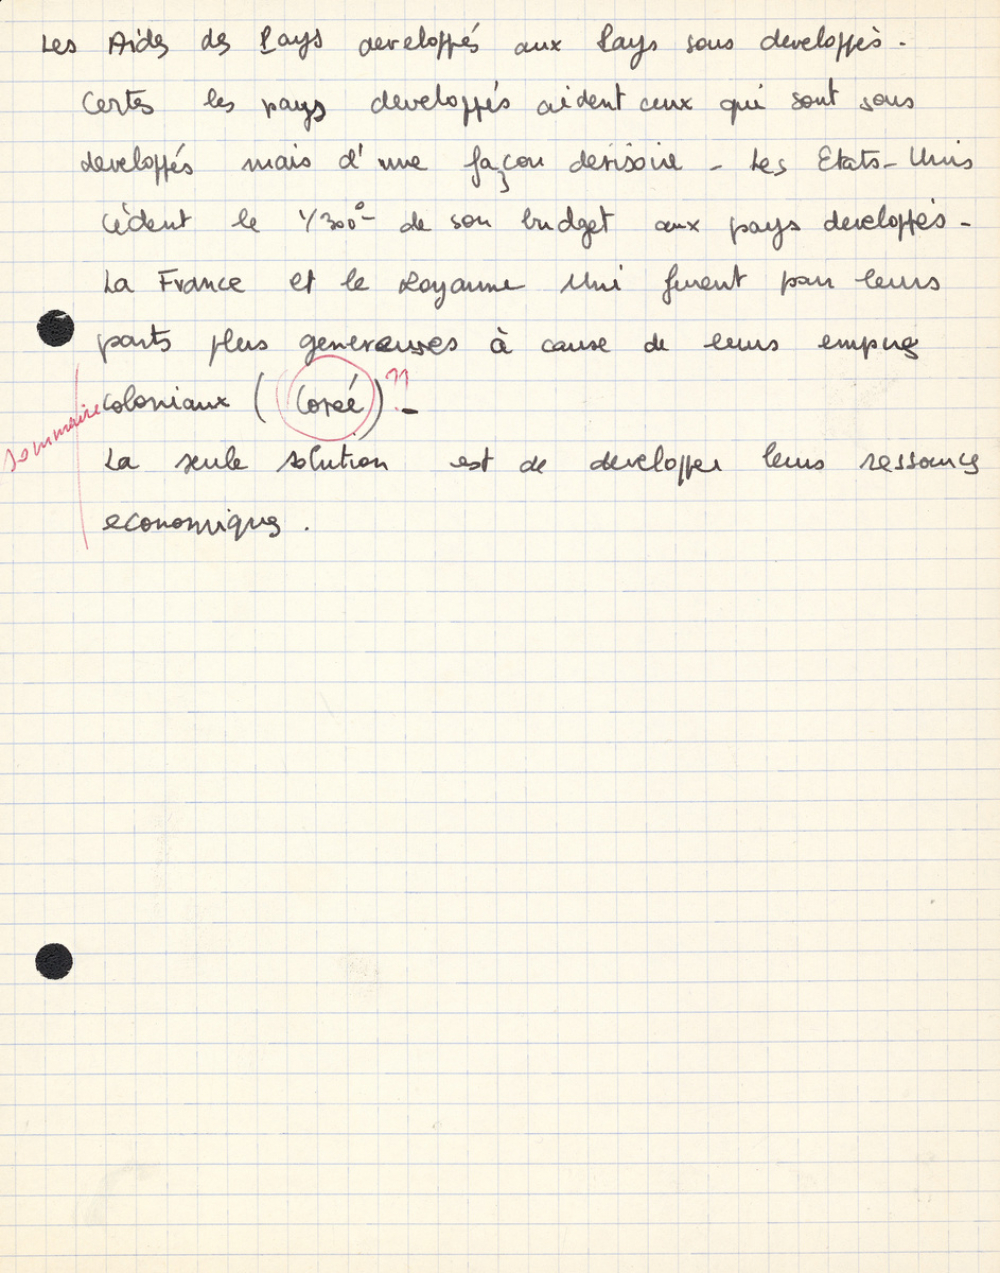 Les Aides des Pays developpés aux Pays sous developpés.
Certes les pays developpés aident ceux qui sont sous
developpés mais d'une façon derisoire - Les Etats-Unis
cèdent le 1/300° de son budget aux pays developpés -
La France et le Royaume Uni furent par leurs
parts plus genereuses à cause de leurs empires
coloniaux (Coreé) ?? -
sommaire
La seule solution est de developper leurs ressources
economiques.